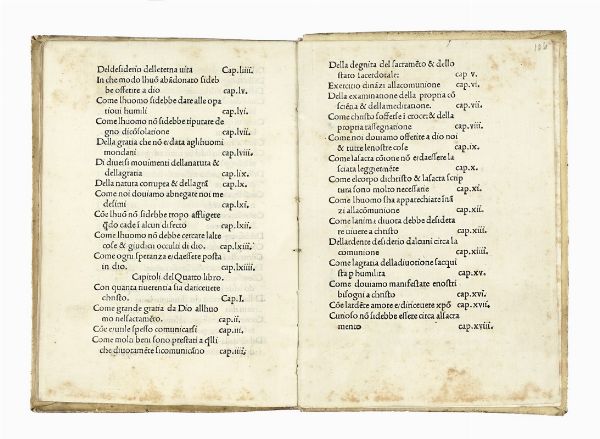 Del desiderio della eterna uita Cap.liiii.
In che modo lhuō abādonato si deb
be offerire a dio cap.lv.
Come lhuomo sidebbe dare alle ope
rationi humili cap.lvi.
Come lhuomo nō sidebbe riputare de
gno dicōsolatione cap.lvii.
Della gratia che nō e data aglhuomi
mondani cap.lviii.
Di diuersi mouimenti della natura &
della gratia cap.lix.
Della natura corrupta & della grā cap.lx.
Come noi douiamo abnegare noi me
desimi cap.lxi.
Cōe lhuō nō sidebbe tropo affligere
q̄do cade ī alcun difecto cap.lxii.
Come lhuomo nō debbe cercare lalte
cose & giudicii occulti di dio. cap.lxiii.
Come ogni speranza e/dauere posta
in dio. cap.lxiiii.
Capitoli del Quarto libro.
Con quanta riuerentia sia da riceuere
christo. Cap.I.
Come grande gratia da Dio allhuo
mo nel sacramēto. cap.ii.
Cōe e/utile spesso comunicarsi cap.iii.
Come molti beni sono prestati a q̄lli
che diuotamēte si comunicāno cap.iiii.
106
Della degnita del sacramēto & dello
stato sacerdotale: cap v.
Exercitio dināzi alla comunione cap.vi.
Della examinatione della propria cō
sciēna & della emendatione. cap.vii.
Come christo sofferse ī croce: & della
propria rassegnatione cap.viii.
Come noi douiamo offerire a dio noi
& tutte le nostre cose cap.ix.
Come la sacra cōione nō e/da essere la
sciata leggiermēte cap.x.
Come el corpo di christo & la sacra scrip
tura sono molto necessarie cap.xi.
Come lhuomo sha apparechiare inā
zi alla comunione cap.xii.
Come lanima diuota debbe desidera
re uiuere a christo cap.xiii.
Dellardente desiderio dalcuni circa la
comunione cap.xiiii.
Come la gratia della diuotione sacqui
sta p humilita cap.xv.
Come douiamo manifestare e nostri
bisogni a christo cap.xvi.
Cōe lardēte amore e/di riceuere xp̄o cap.xvii.
Curioso nō sidebbe essere circa al sacra
mento cap.xviii.